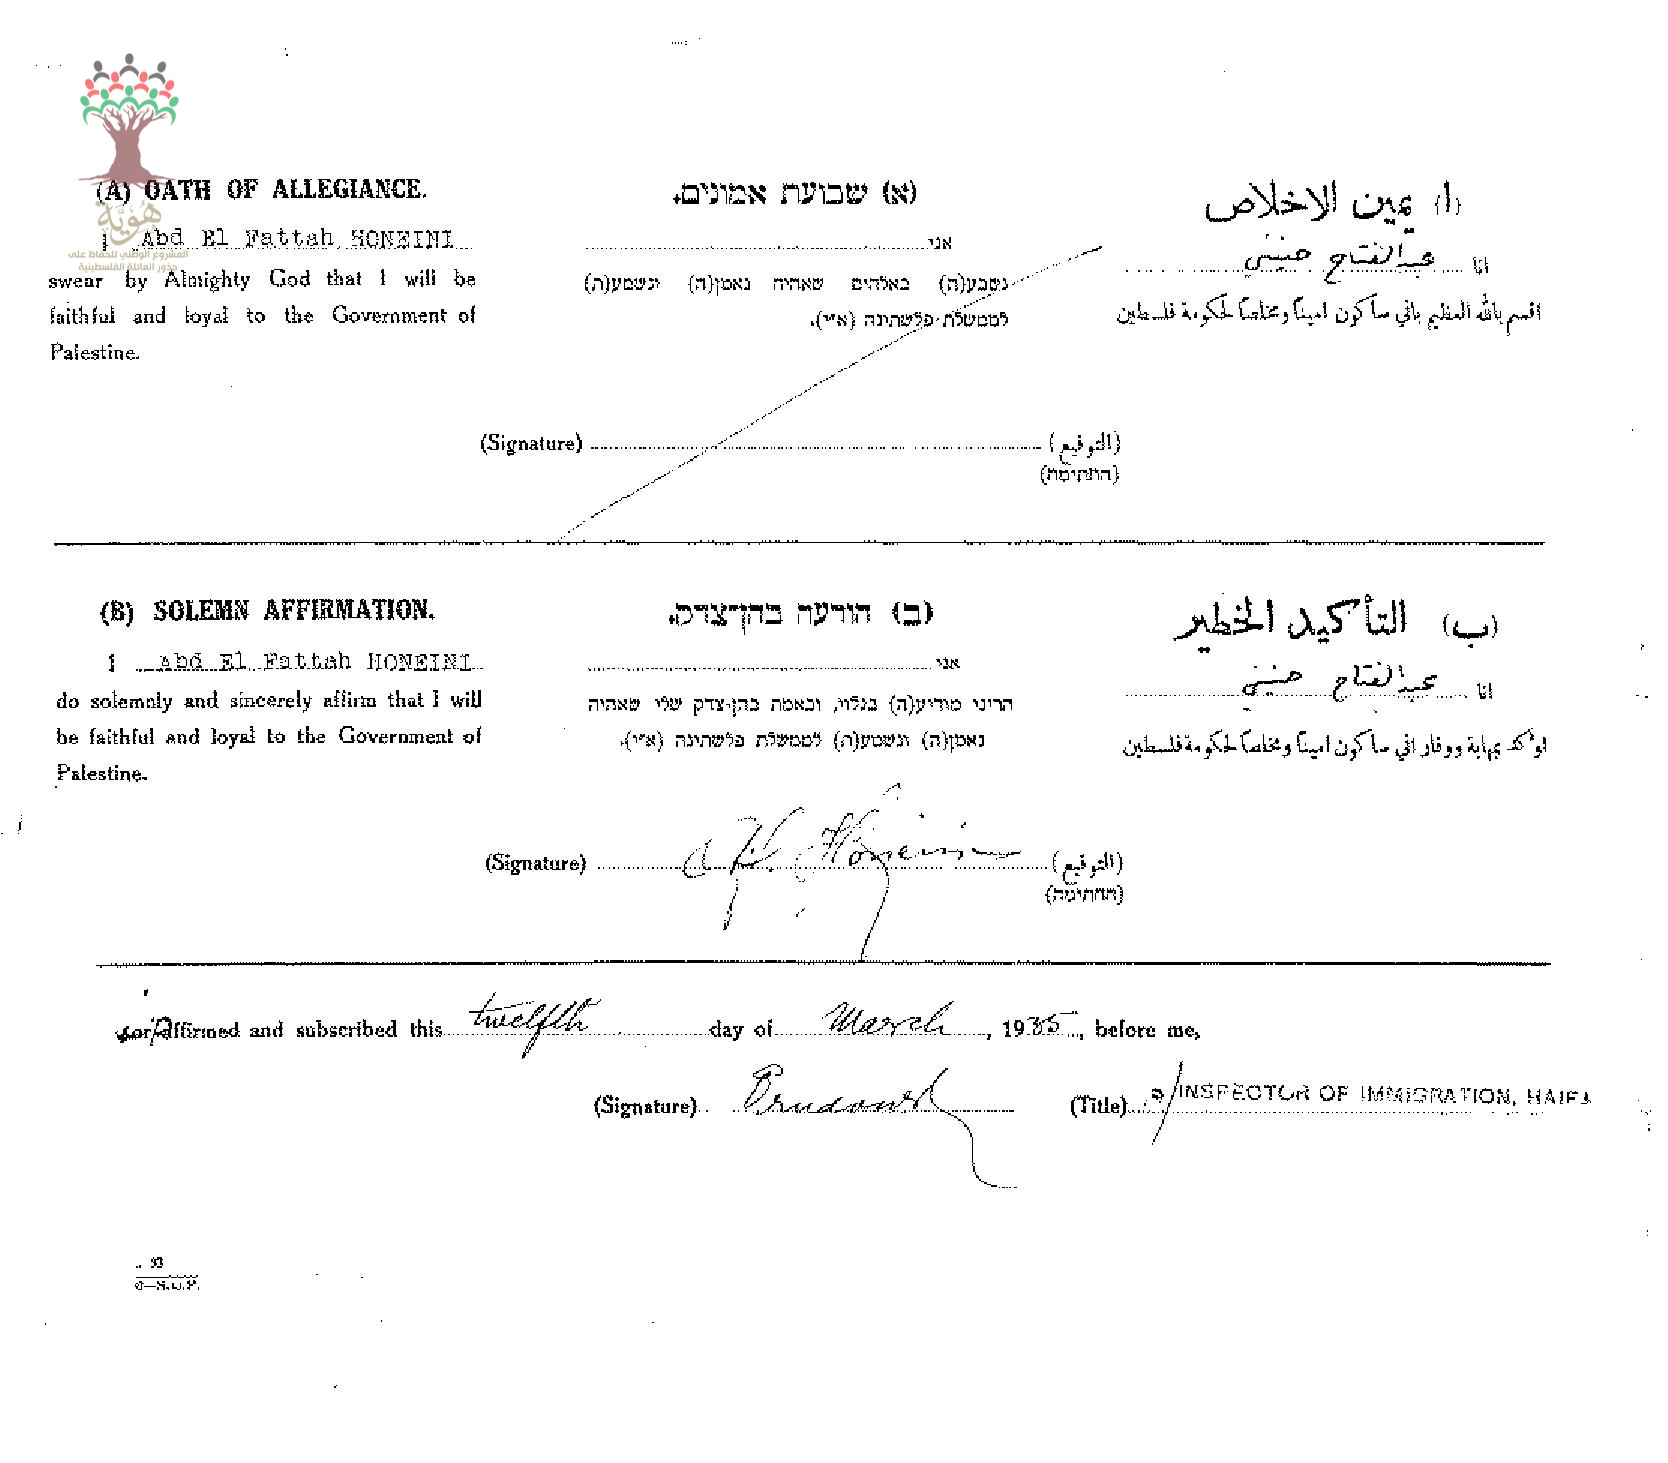 (A) OATH OF ALLEGIANCE.
I Abd El Fattah HONEINI
swear by Almighty God that I will be
faithful and loyal to the Government of
Palestine.
هُوِيَّة
المشروع الوطني للحفاظ على
جذور العائلة الفلسطينية
(א) שבועת אמונים.
אני
נשבע(ה) באלהים שאהיה נאמן(ה) ונשמע(ת)
לממשלת פלשתינה (א״י).
(ا) يمين الاخلاص
انا عبد الفتاح حنيني
اقسم بالله العظيم باني ساكون امينا ومخلصا لحكومة فلسطين
(Signature) (التوقيع)
(החתימה)
(B) SOLEMN AFFIRMATION.
I Abd El Fattah HONEINI
do solemnly and sincerely affirm that I will
be faithful and loyal to the Government of
Palestine.
(ב) הודעה בהן־צדק.
אני
הריני מודיע(ה) בגלוי, ובאמת בהן־צדק שלי שאהיה
נאמן(ה) ונשמע(ת) לממשלת פלשתינה (א״י).
(ب) التأكيد الخطير
انا عبد الفتاح حنيني
اوكد بمهابة ووقار اني ساكون امينا ومخلصا لحكومة فلسطين
(Signature) Honeini (التوقيع)
(החתימה)
or Affirmed and subscribed this twelfth day of March, 1935, before me,
(Signature) (Title) INSPECTOR OF IMMIGRATION, HAIFA
93